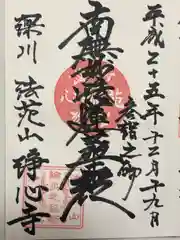 平成二十五年十二月十九日
参詣之御
南無妙法蓮華経
深川 法苑山 浄心寺